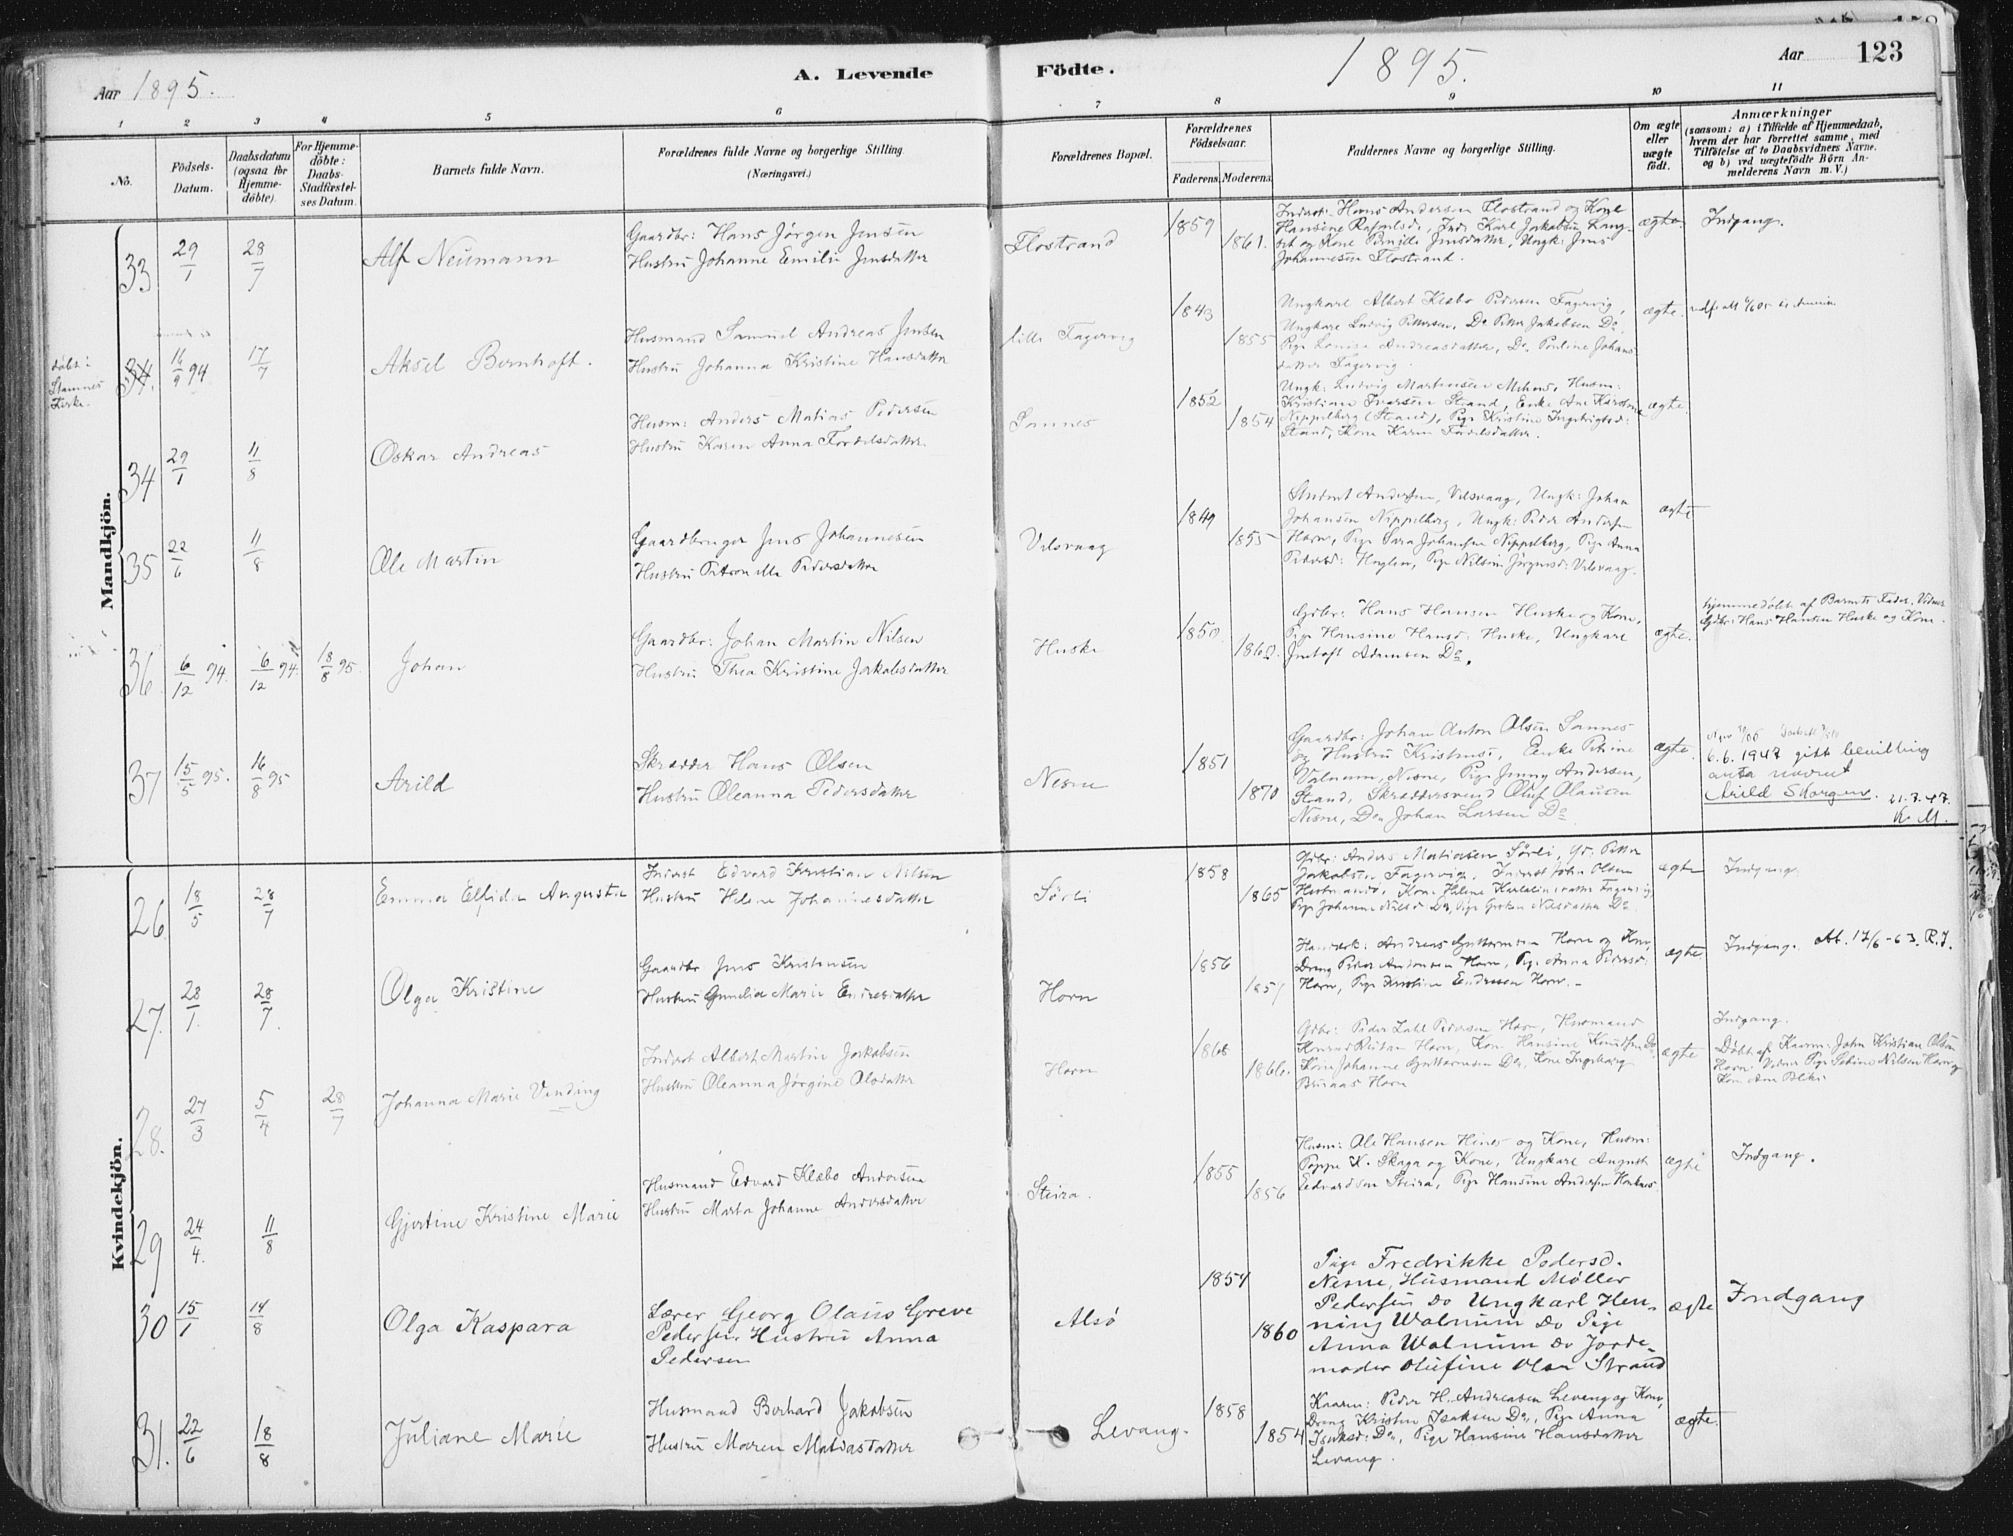 Aar 1895.
A. Levende Födte.
1895.
Aar 123
1 2 3 4 5 6 7 8 9 10 11
No.
Födsels-Datum.
Daabsdatum (ogsaa for Hjemmedöbte).
For Hjemmedöbte: Daabs-Stadfæstelses Datum.
Barnets fulde Navn.
Forældrenes fulde Navne og borgerlige Stilling. (Næringsvei.)
Forældrenes Bopæl.
Forældrenes Födselsaar.
Faderens. Moderens.
Faddernes Navne og borgerlige Stilling.
Om ægte eller uægte født.
Anmærkninger
(saasom: a) i Tilfælde af Hjemmedaab, hvem der har forrettet samme, med Tilföielse af to Daabsvidners Navne, og b) ved uægtefödte Börn Anmelderens Navn m. V.)
Mandkjön.
33 29/1 28/7 Alf Neumann
Gaardbr: Hans Jørgen Jensen
Hustru Johanne Emilie Jensdatter
Flostrand 1859 1861.
Inderst: Hans Andersen Flostrand og Kone
Hansine Rafaelsd., Ind: Karl Jakobsen Lang-
set og Kone Pernille Jensdatter, Ungk: Jens
Johannesen Flostrand.
ægte. Indgang.
døbt i
Stamnes
Kirke.
34. 16/9 94 17/7 Aksel Bernhoft.
Husmand Samuel Andreas Jensen
Hustru Johanna Kristine Hansdatter
lille Fagervig 1843 1855
Ungkarl Albert Klæbo Pedersen Fagervig,
Ungkarl Ludvig Pettersen, Do Petter Jakobsen Do.
Pige Lovisa Andreasdatter, Do. Pauline Johans
datter Fagervig.
ægte.
34 29/1 11/8 Oskar Andreas
Husm: Anders Matias Pedersen
Hustru Karen Anna Fordelsdatter.
Sannes 1852 1854
Ungk: Ludvig Martinusen, Husm:
Kristian Ivarsen Strand, Enke Ane
Nippelberg (Strand), Pige Kristine Ingebrigtsd:
Strand, Kone Karen
ægte.
35 22/6 11/8 Ole Martin
Gaardbruger Jens Johannesen
Hustru Petronelle Pedersdatter
Valsvaag 1849 1855
Andersen, Valsvaag, Ungk: Johan
Johansen Nippelberg, Ungk: Peder Andersen
Horn, Pige Sara Johansen Nippelberg, Pige Anna
Pedersd: Haglen, Pige Nilsine Jørgensd: Valsvaag.
ægte
36 6/12 94. 6/12 94. 18/8 95. Johan
Gaardbr: Johan Martin Nilsen
Hustru Thea Kristine Jakobsdatter
Huske 1850. 1862.
Gdbr: Hans Hansen Huske og Kone,
Pige Hansine Hansd: Huske, Ungkarl
Adamsen Do.
ægte.
hjemmedøbt af Barnets Fader. Vidner
Gdbr: Hans Hansen Huske og Kone.
37 15/5 95. 16/8 95 Arild
Skrædder Hans Olsen
Hustru Oleanna Pedersdatter
Nesne 1851 1870
Gaardbr: Johan Anton Olsen Sannes
og Hustru Kristense, Enke Petrine
Valnum, Nesne, Pige Jenny Andersen,
Strand, Skræddersvend Oluf Olausen
Nesne, Do Johan Larsen Do
ægte.
6.6.1947 gitt bevilling
anta navnet
Arild Skorgen. 21.7.47.
K. M.
Kvindekjön.
26. 18/5 28/7 Emma Elfida Augusta
Inderst Edvard Kristian Nilsen
Hustru Helene Johannesdatter
Sørli 1858 1865
Gdbr: Anders Matiasen Sørli, Petter
Jakobsen Fagervig, Inderst John Olsen
Kone Helene Fagervig,
Pige Johanne Nilsd Do, Pige Nilsdatter Do
ægte Indgang.
27. 28/1. 28/7. Olga Kristine
Gaardbr Jens Kristensen
Hustru Gunelia Marie Endresdatter
Horn 1856 1857
Andreas Guttormsen Horn og Kone,
Dreng Peder Andersen Horn, Pige Anna Pedersd:
Horn, Pige Kristine Endresen Horn.-
ægte. Indgang. Att. 17/6-63. R.J.
28. 27/3 5/4 28/7 Johanna Marie Vending
Inderst Albert Martin Jakobsen
Hustru Oleanna Jørgine Olsdatter
Horn 1868 1866.
Gdbr: Peder Pedersen Horn, Husmand
Konrad Horn, Kone Hansine Knudsen Do,
Kone Johanne Guttormsen Do, Kone Ingeborg
Horn
ægte
Indgang.
Døbt af Kaarm: John Kristian Olsen
Horn. Vidner Pige Nilsen Horn og
Kone Ane
29 24/4. 11/8 Gjertine Kristine Marie
Husmand Edvard Klæbo Andersen
Hustru Marta Johanne Andersdatter
Steira. 1855 1856
Husm: Ole Hansen og Kone, Husm:
Poppe K. Skaga og Kone, Ungkarl August
Edvardsen Steira, Pige Hansine Andersen
ægte Indgang.
30 15/1 14/8 Olga Kaspara
Lærer Georg Olaus Greve
Pedersen Hustru Anna
Pedersen
Alsø 1857 1860
Pige Fredrikke Pedersd.
Nesne, Husmand Møller
Pedersen Do Ungkarl Hen-
ning Walnum Do Pige
Anna Walnum Do Jorde-
moder Olufine Olsen Strand
ægte Indgang
31. 22/6 18/8 Juliane Marie
Husmand Berhard Jakobsen
Hustru Maren Matiasdatter
Levang. 1858 1854
Kaarm: Peder H. Andreasen Levang og Kone,
Dreng Kristen Isaksen Do, Pige Anna
Isaksd: Do, Pige Hansine Hansdatter
Levang.
ægte.